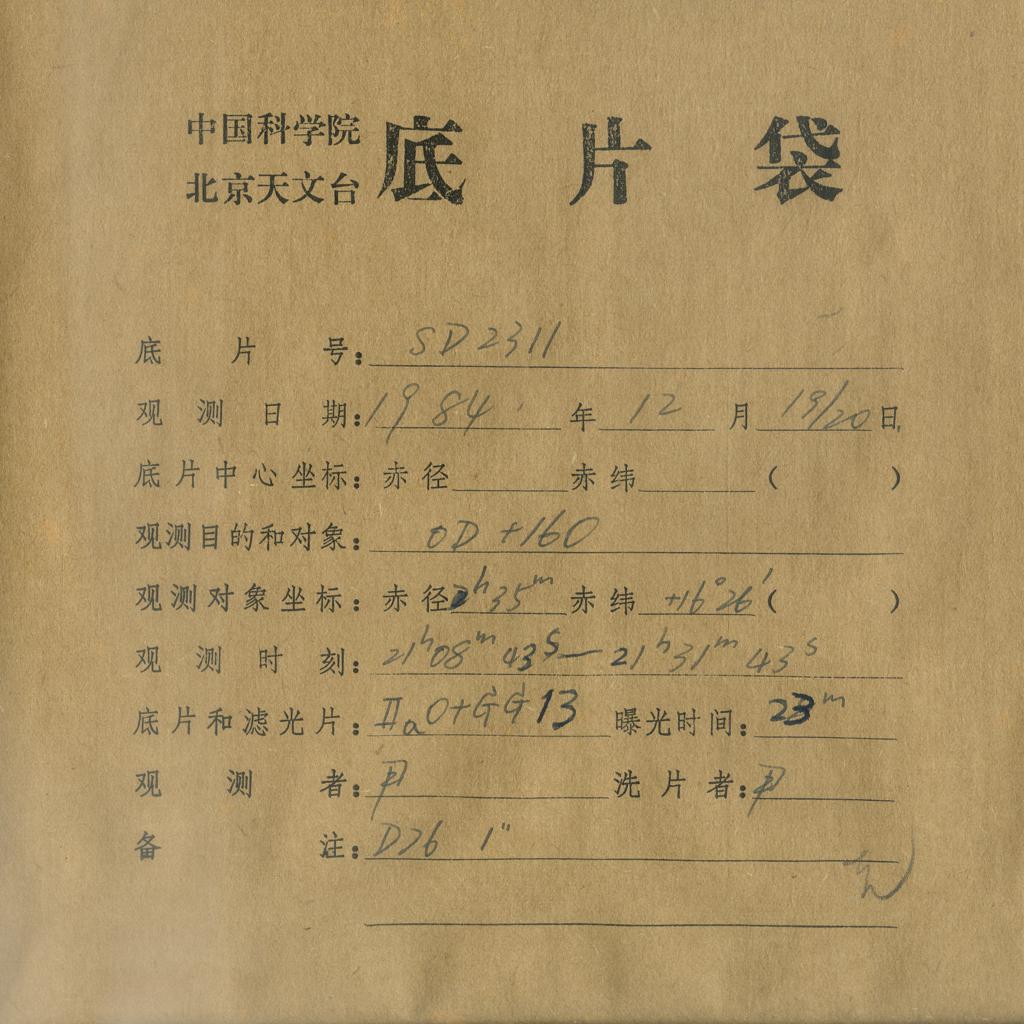 中国科学院
北京天文台 底片袋
底片号：SD2311
观测日期：1984年12月19/20日
底片中心坐标：赤径 赤纬 （ ）
观测目的和对象：OD+160
观测对象坐标：赤径2ʰ35ᵐ 赤纬+16°26′（ ）
观测时刻：21ʰ08ᵐ43ˢ—21ʰ31ᵐ43ˢ
底片和滤光片：IIaO+GG13 曝光时间：23ᵐ
观测者：尹 洗片者：尹
备注：D76 1"